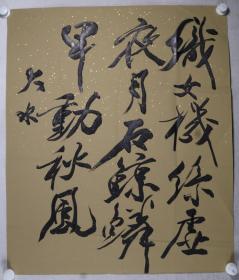 織女機絲虛
夜月石鯨鱗
甲動秋風
大水